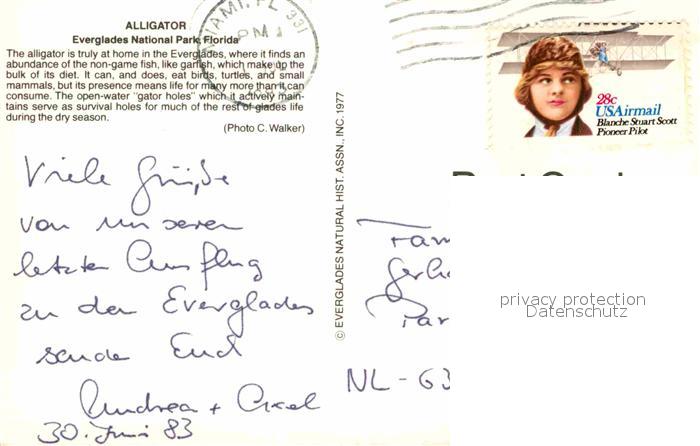 ALLIGATOR
Everglades National Park, Florida
The alligator is truly at home in the Everglades, where it finds an
abundance of the non-game fish, like garfish, which make up the
bulk of its diet. It can, and does, eat birds, turtles, and small
mammals, but its presence means life for many more than it can
consume. The open-water "gator holes" which it actively main-
tains serve as survival holes for much of the rest of glades life
during the dry season.
(Photo C. Walker)
MIAMI, FL 331
PM
28c
USAirmail
Blanche Stuart Scott
Pioneer Pilot
© EVERGLADES NATURAL HIST. ASSN., INC. 1977
Viele Grüße
von unseren
letzten Ausflug
zu den Everglades
sende Euch
Andrea + Axel
30. Juni 83
Fam
Gerh
Par
NL - 63
privacy protection
Datenschutz